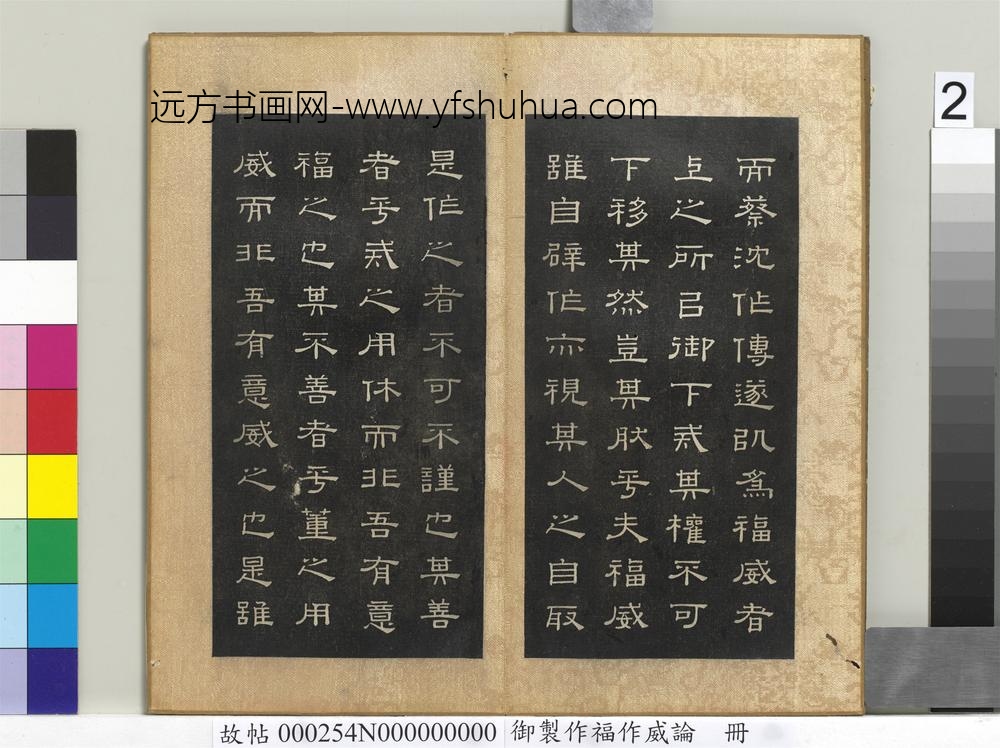 远方书画网-www.yfshuhua.com
2
而蔡沈作傳遂為福威者
上之所㠯御下戒其權不可
下移其然豈其肰乎夫福威
雖自辟作亦視其人之自取
是作之者不可不謹也其善
者乎戒之用休而非吾有意
福之也其不善者乎董之用
威而非吾有意威之也是雖
故帖 000254N000000000 御製作福作威論 冊